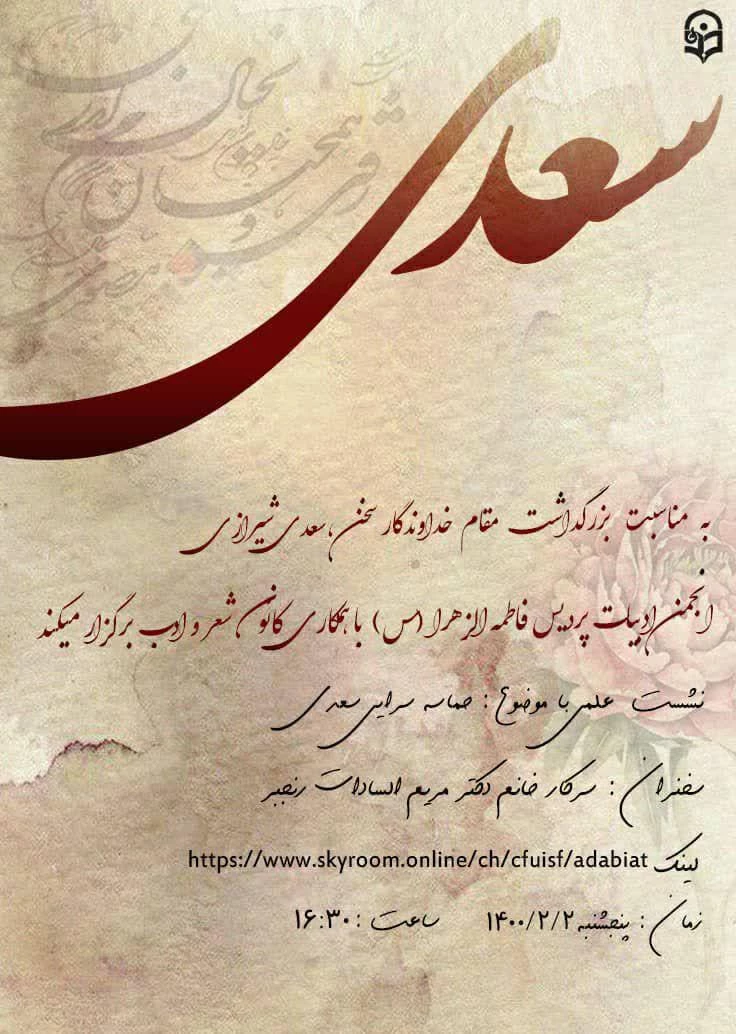 سعدی
به مناسبت بزرگداشت مقام خداوندگار سخن، سعدی شیرازی
انجمن ادبیات پردیس فاطمه الزهرا (س) با همکاری کانون شعر و ادب برگزار میکند
نشست علمی با موضوع : حماسه سرایی سعدی
سخنران : سرکار خانم دکتر مریم السادات رنجبر
لینک https://www.skyroom.online/ch/cfuisf/adabiat
زمان : پنجشنبه ۱۴۰۰/۲/۲ ساعت : ۱۶:۳۰